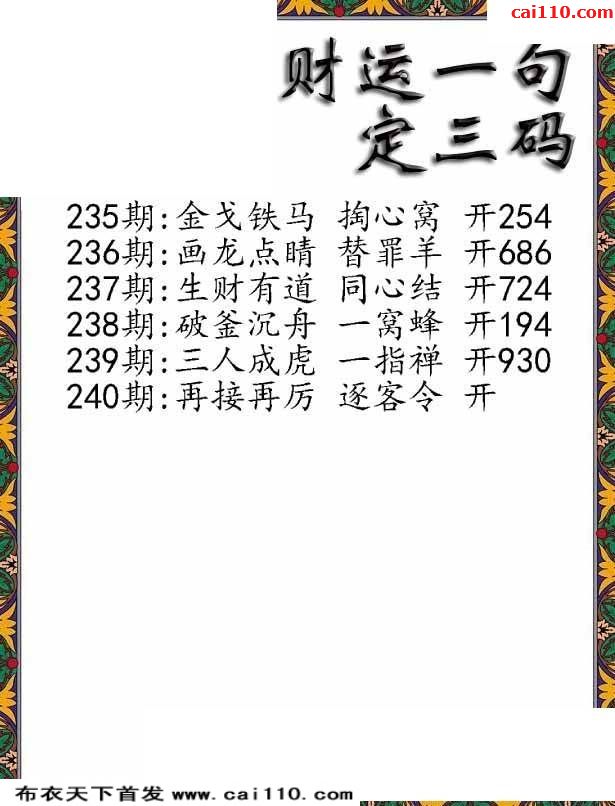 cai110.com
财运一句
定三码
235期:金戈铁马 掏心窝 开254
236期:画龙点睛 替罪羊 开686
237期:生财有道 同心结 开724
238期:破釜沉舟 一窝蜂 开194
239期:三人成虎 一指禅 开930
240期:再接再厉 逐客令 开
布衣天下首发 www.cai110.com